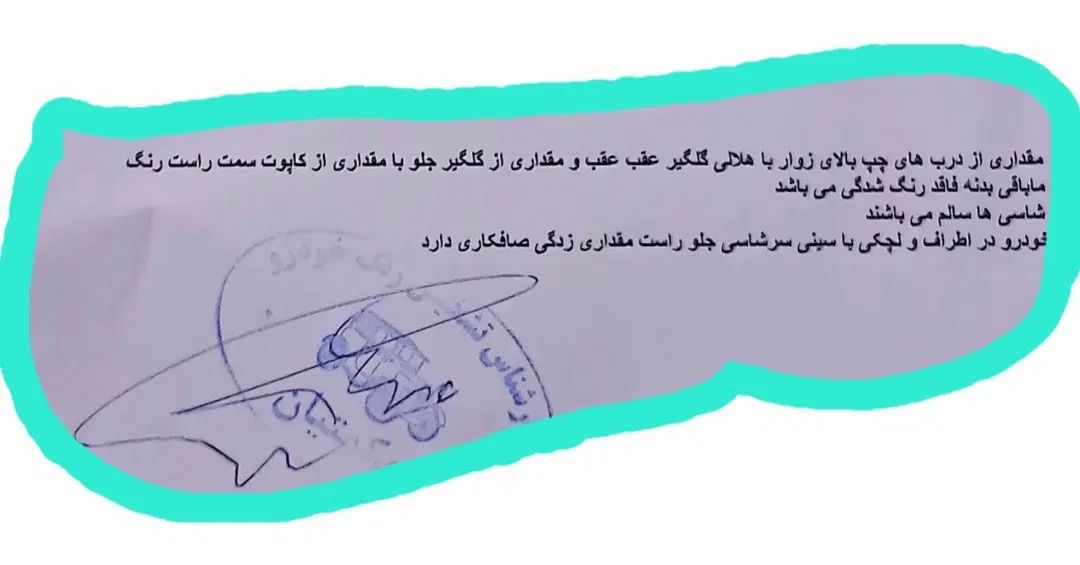 مقداری از درب های چپ بالای زوار با هلالی گلگیر عقب عقب و مقداری از گلگیر جلو با مقداری از کاپوت سمت راست رنگ
مابافی بدنه فاقد رنگ شدگی می باشد
شاسی ها سالم می باشند
خودرو در اطراف و لچکی با سینی سرشاسی جلو راست مقداری زدگی صافکاری دارد
تشخیص رنگ خودرو